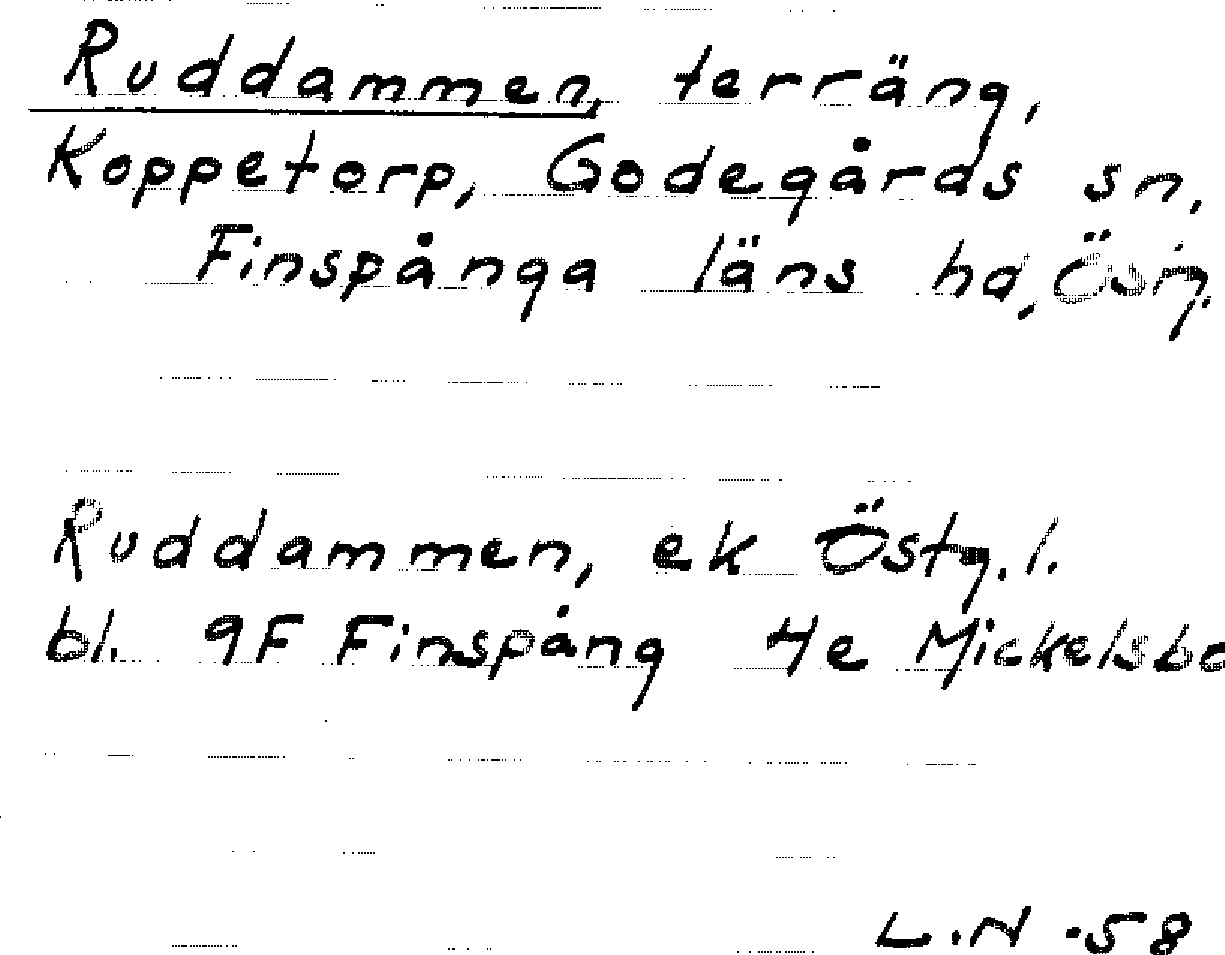 Ruddammen, terräng,
Koppetorp, Godegårds sn,
Finspånga läns hd, Ög.
Ruddammen, ek Östg. l.
bl. 9F Finspång 4e Mickelsbo
L.N -58